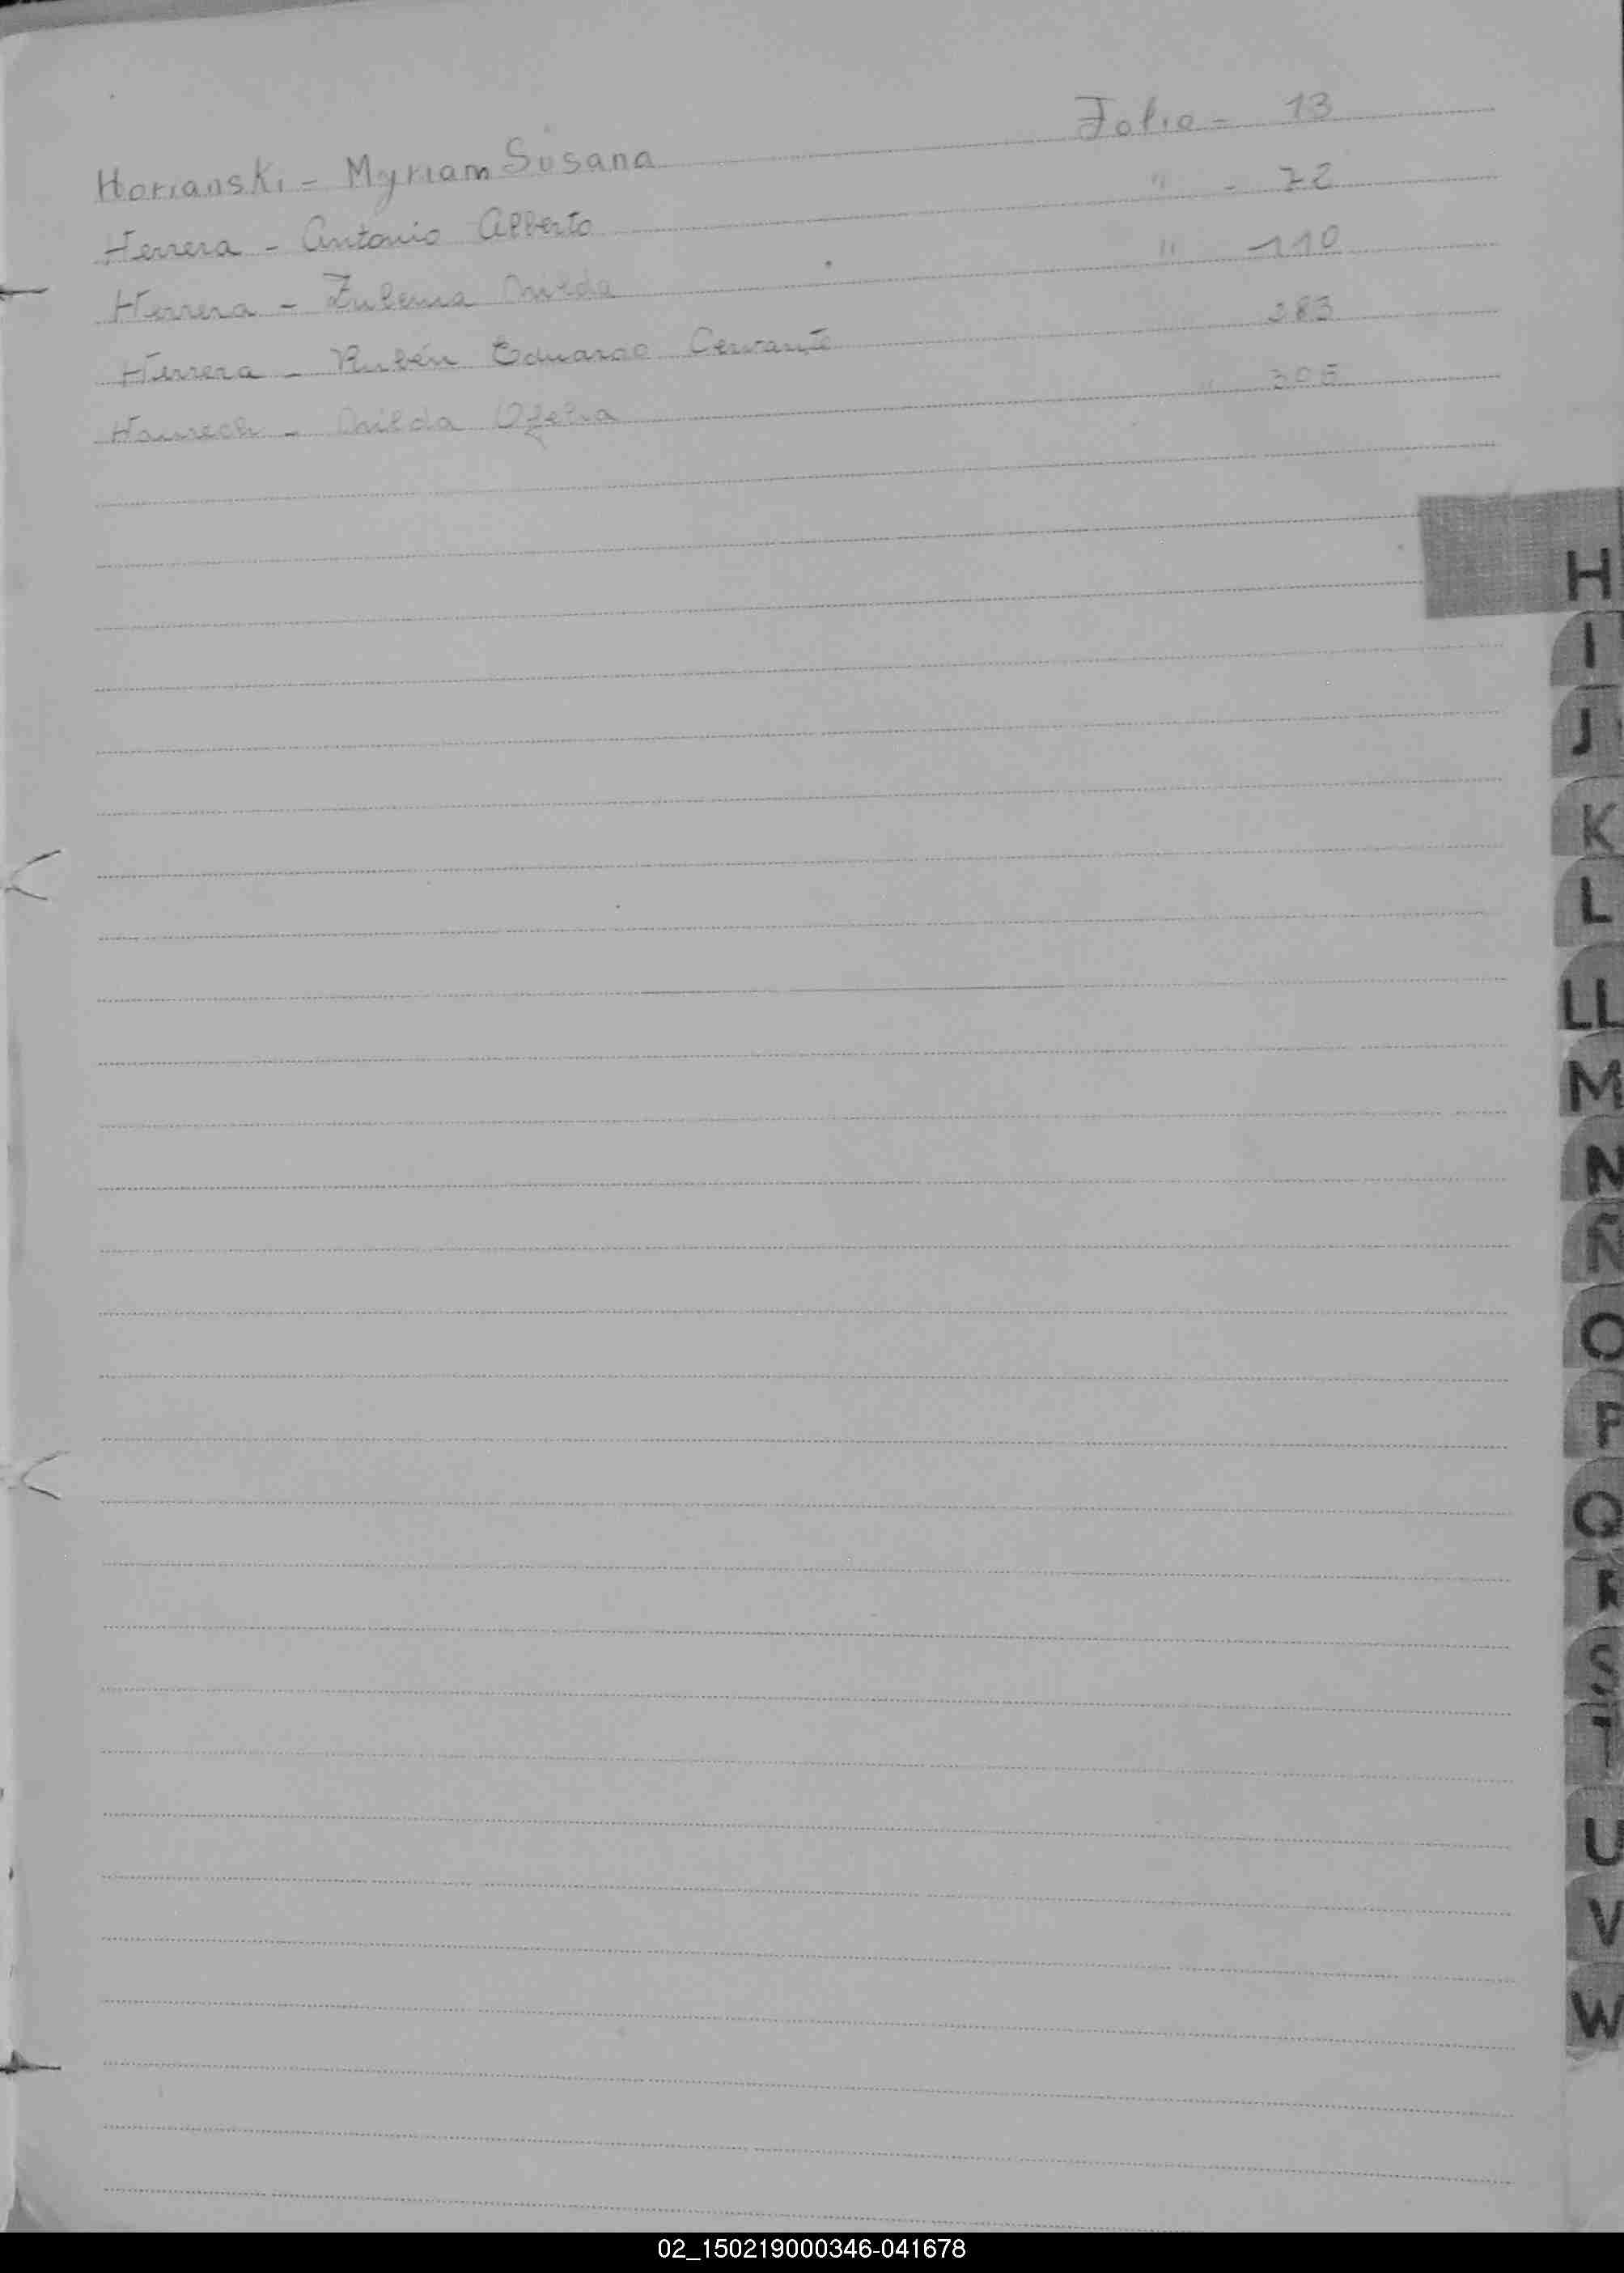 Horianski = Myriam Susana Folio = 13
Herrera - Antonio Alberto " - 72
Herrera - Zulema Nilda " - 110
Herrera - Rubén Eduardo Cervante 283
- Nilda Ofelia " 305
H
I
J
K
L
LL
M
N
Ñ
O
P
Q
R
S
T
U
V
W
02_150219000346-041678